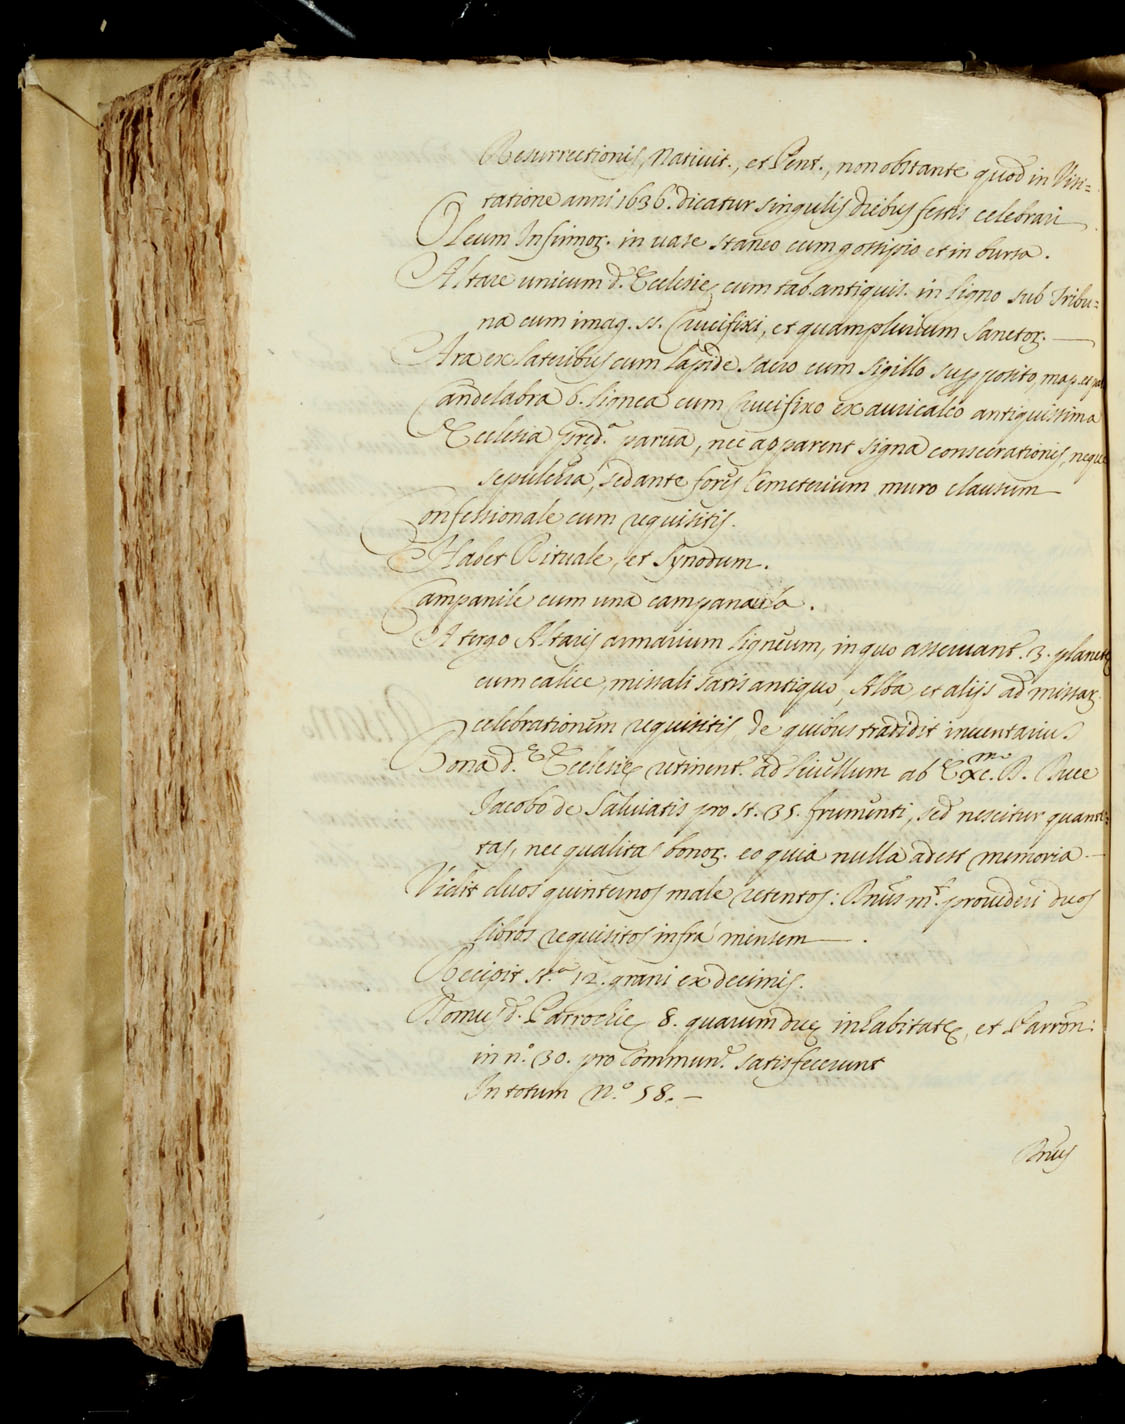 Resurrectionis, Nativit., et Pent., non obstante quod in Visi=
tatione anni 1636. dicatur singulis diebus festis celebrari
Oleum Infirmor. in vase staneo cum gossipio et in bursa.
Altare unicum d. Ecclesie cum tab. antiquis. in ligno sub Tribu=
na cum imag. SS. Crucifixi, et quamplurium Sanctor.—
Ara ex lateribus cum lapide sacro cum sigillo supposito, map. et
Candelabra 6. lignea cum Crucifixo ex auricalco antiquissima
Ecclesia pred.a parva, nec apparent signa consecrationis, neque
sepulcra, sed ante fores Cemeterium muro clausum
Confessionale cum requisitis.
Habet Rituale, et Synodum.
Campanile cum una campana.
A tergo Altaris armarium ligneum, in quo asservant. 3. planete
cum calice, missali satis antiquo, Alba et alijs ad missar.
celebrationem requisitis de quibus tradidit inventariu.
Bona d. Ecclesie retinent. ad livellum ab Exc.mo D. Duce
Jacobo de Salviatis pro st. 35. frumenti, sed nescitur quanti=
tas, nec qualitas bonor. eo quia nulla adest memoria—
Vidit duos quinternos male retentos: Dnus m.t provideri duos
libros requisitos infra mensem—.
Recipit st.a 12. grani ex decimis.
Domus d. Parrochie 8. quarum due inhabitate, et Parron:
in n.o 30. pro Commun.e satisfecerunt
In totum N.o 58.—
Dnus